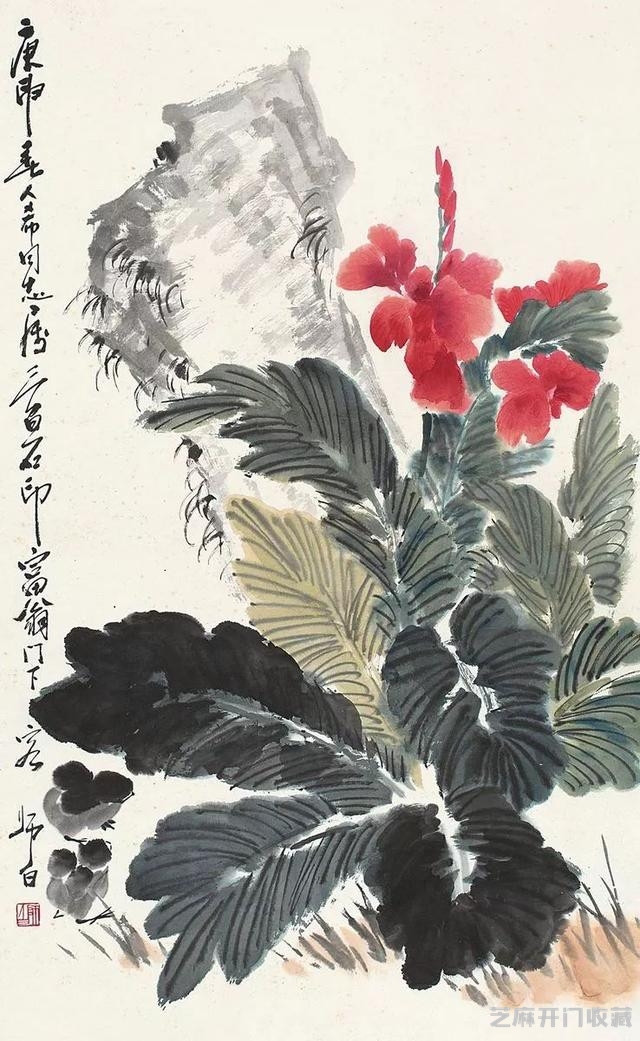 庚申春人希同志三百石印富翁门下客师白
芝麻开门收藏